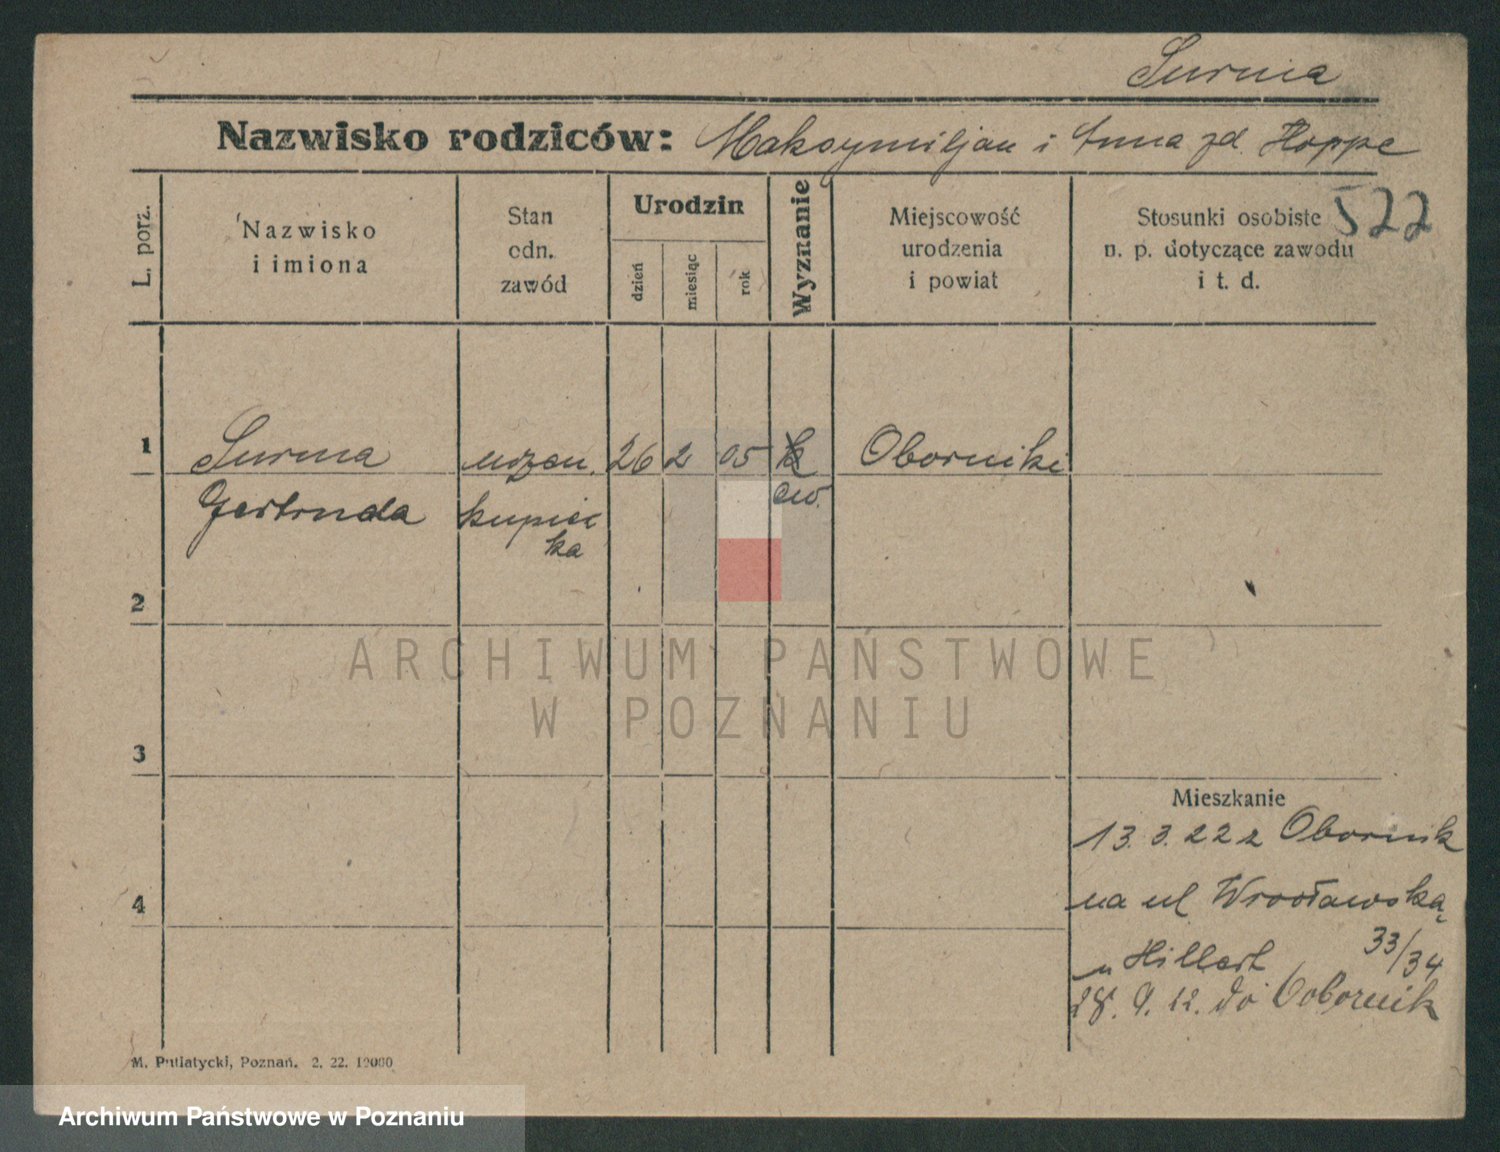 Surma
Nazwisko rodziców: Maksymiljan i Anna zd. Hoppe
522
L. porz.
Nazwisko
i imiona
Stan
odn.
zawód
Urodzin
dzień
miesiąc
rok
Wyznanie
Miejscowość
urodzenia
i powiat
Stosunki osobiste
n. p. dotyczące zawodu
i t. d.
1 Surma uczen. 26 2 05 k Oborniki
Gertruda kupiec ew.
ka
2
3
4
Mieszkanie
13. 3. 22 z Obornik
na ul Wrocławską
33/34
u Hillert
28. 9. 22. do Obornik
M. Putiatycki, Poznań. 2. 22. 10000
ARCHIWUM PAŃSTWOWE
W POZNANIU
Archiwum Państwowe w Poznaniu